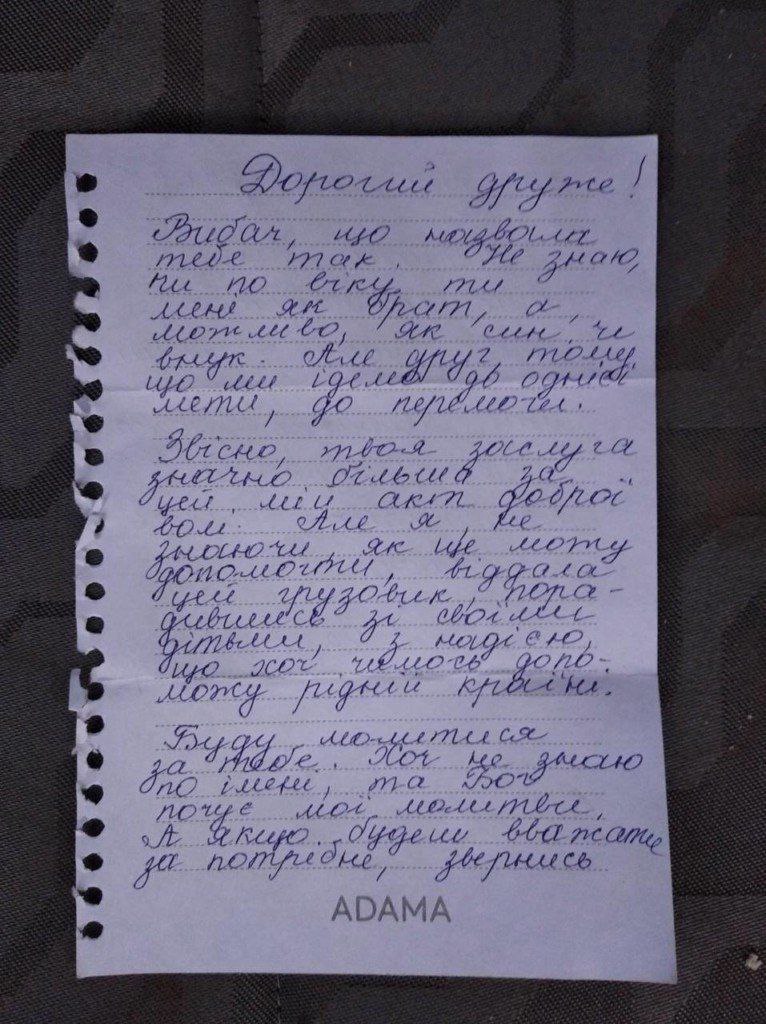 Дорогий друже!
Вибач, що назвала
тебе так. Не знаю,
чи по віку ти
мені як брат, а,
можливо, як син чи
внук. Але друг, тому
що ми ідемо до однієї
мети, до перемоги.
Звісно, твоя заслуга
значно більша за
цей мій акт доброї
волі. Але я, не
знаючи, як ще можу
допомогти, віддала
цей грузовик, пора-
дившись зі своїми
дітьми, з надією,
що хоч чимось допо-
можу рідній країні.
Буду молитися
за тебе. Хоч не знаю
по імені, та Бог
почує мої молитви.
А якщо будеш вважати
за потрібне, звернись
ADAMA